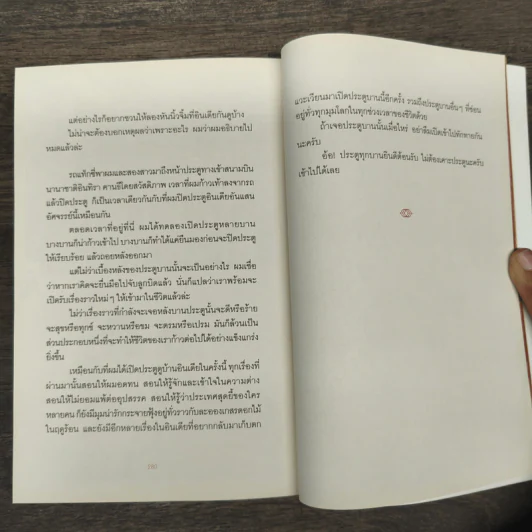 แต่อย่างไรก็อยากชวนให้ลองหันนิ้วจิ้มที่อินเดียกันดูบ้าง
ไม่น่าจะต้องบอกเหตุผลว่าเพราะอะไร ผมว่าผมอธิบายไป
หมดแล้วล่ะ
รถแท็กซี่พาผมและสองสาวมาถึงหน้าประตูทางเข้าสนามบิน
นานาชาติอินทิรา คานธีโดยสวัสดิภาพ เวลาที่ผมก้าวเท้าลงจากรถ
แล้วปิดประตู ก็เป็นเวลาเดียวกันกับที่ผมปิดประตูอินเดียอันแสน
อัศจรรย์นี้เหมือนกัน
ตลอดเวลาที่อยู่ที่นี่ ผมได้ทดลองเปิดประตูหลายบาน
บางบานก็น่าก้าวเข้าไป บางบานก็ทำได้แค่ยืนมองก่อนจะปิดประตู
ให้เรียบร้อย แล้วถอยหลังออกมา
แต่ไม่ว่าเบื้องหลังของประตูบานนั้นจะเป็นอย่างไร ผมเชื่อ
ว่าหากเราคิดจะยื่นมือไปจับลูกบิดแล้ว นั่นก็แปลว่าเราพร้อมจะ
เปิดรับเรื่องราวใหม่ๆ ให้เข้ามาในชีวิตแล้วล่ะ
ไม่ว่าเรื่องราวที่กำลังจะเจอหลังบานประตูนั้นจะดีหรือร้าย
จะสุขหรือทุกข์ จะหวานหรือขม จะตรมหรือเปรม มันก็ล้วนเป็น
ส่วนประกอบหนึ่งที่จะทำให้ชีวิตของเราก้าวต่อไปได้อย่างแข็งแกร่ง
ยิ่งขึ้น
เหมือนกับที่ผมได้เปิดประตูบ้านอินเดียในครั้งนี้ ทุกเรื่องที่
ผ่านมานั้นสอนให้ผมอดทน สอนให้รู้จักและเข้าใจในความต่าง
สอนให้ไม่ยอมแพ้ต่ออุปสรรค สอนให้รู้ว่าประเทศสุดยี้ของใคร
หลายคน ก็ยังมีมุมน่ารักกระจายฟุ้งอยู่ทั่วราวกับละอองเกสรดอกไม้
ในฤดูร้อน และยังมีอีกหลายเรื่องในอินเดียที่อยากกลับมาเก็บตก
แวะเวียนมาเปิดประตูบานนี้อีกครั้ง รวมถึงประตูบานอื่นๆ ที่ซ่อน
อยู่ทั่วทุกมุมโลกในทุกช่วงเวลาของชีวิตด้วย
ถ้าเจอประตูบานนั้นเมื่อไหร่ อย่าลืมเปิดเข้าไปทักทายกัน
นะครับ
อ้อ! ประตูทุกบานยินดีต้อนรับ ไม่ต้องเคาะประตูนะครับ
เข้าไปได้เลย